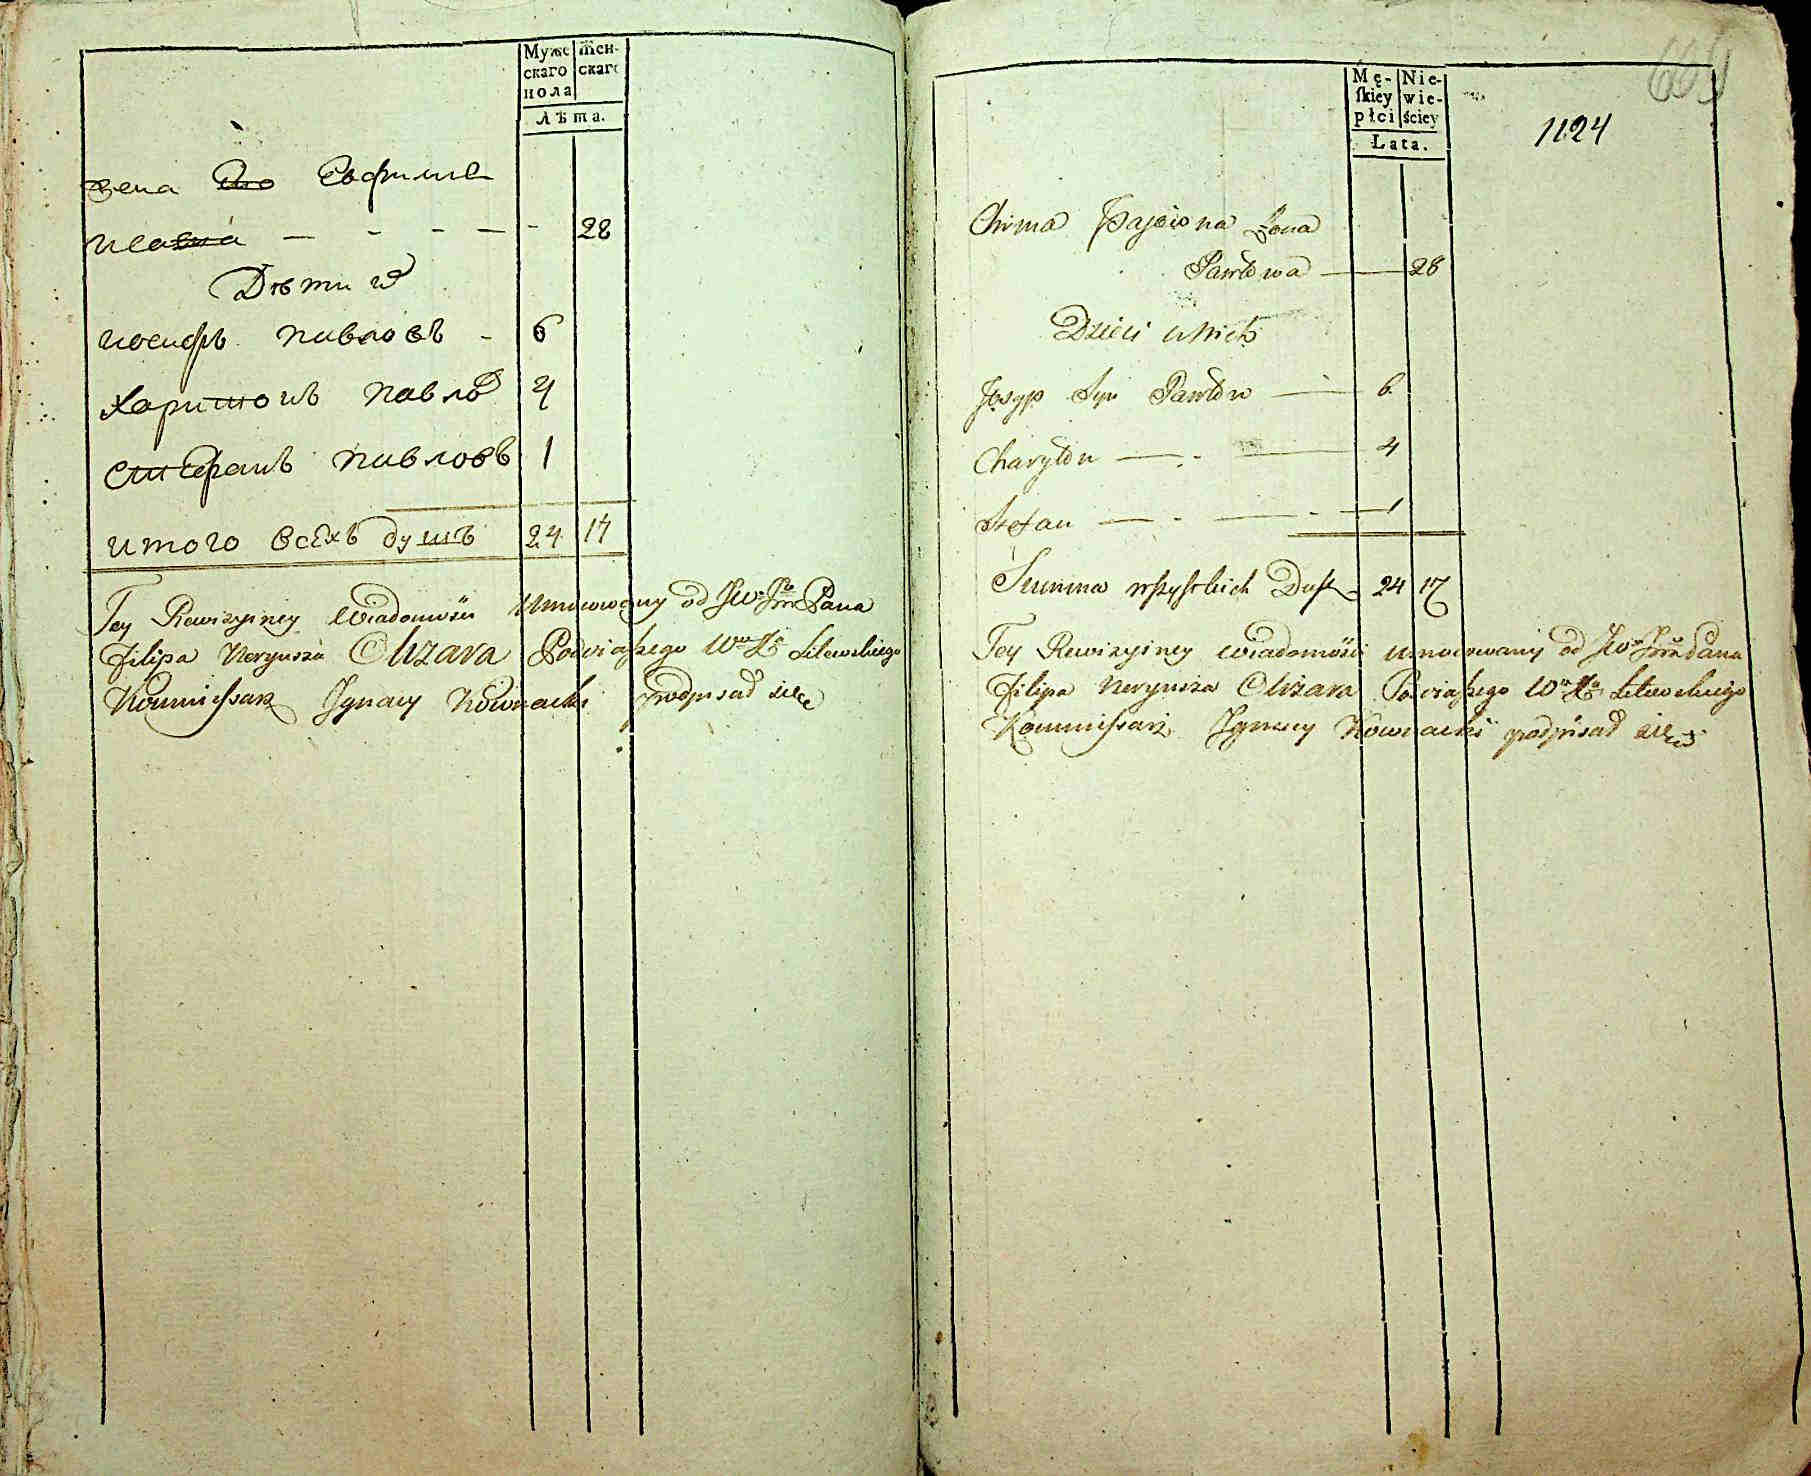 Муже тен-
скаго скаго
пола
Лѣта.
жена его Евфимия
28
Дѣти их
иосифъ павловъ - 6
Харитонъ павлов 4
стефанъ павловъ 1
итого всѣхъ душъ 24 17
Tey Rewizyiney Wiadomości Umocowany od JW Jm Pana
Filipa Neryusza Olizara Podczaszego W X Litewskiego
Kommissarz Ignacy Kownacki podpisał się
669
Mę- Nie-
skiey wie-
płci ściey
Lata.
1124
Chima żona
Pawłowa — 28
Dzieci u Nich
Josyp Syn Pawłow — 6
Charyton — 4
Stefan — 1
Summa wszystkich Dusz 24 17
Tey Rewizyiney wiadomości umocowany od JW Jm Pana
Filipa Neryusza Olizara Podczaszego W X Litewskiego
Kommissarz Ignacy Kownacki podpisał się